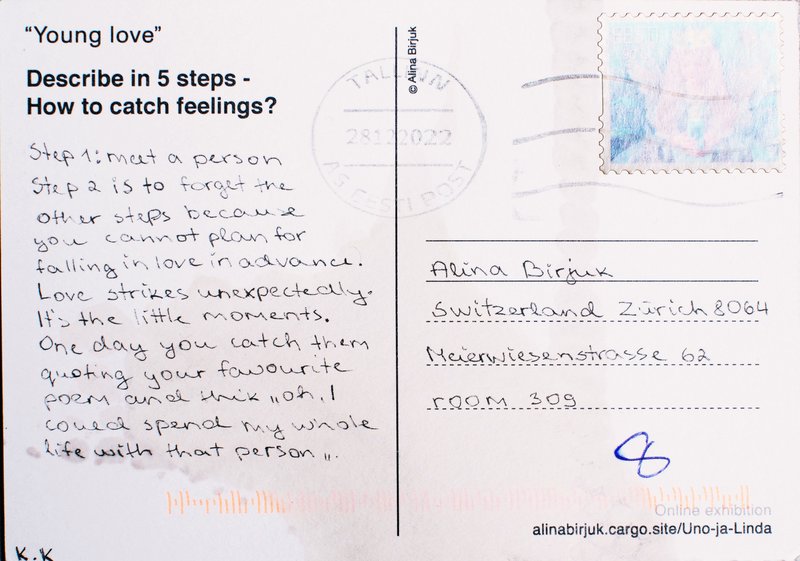 “Young love”
Describe in 5 steps -
How to catch feelings?
Step 1: meet a person
Step 2 is to forget the
other steps because
you cannot plan for
falling in love in advance.
Love strikes unexpectedly.
It's the little moments.
One day you catch them
quoting your favourite
poem and think „oh, I
could spend my whole
life with that person„.
K.K
© Alina Birjuk
TALLINN
28122022
AS EESTI POST
Alina Birjuk
Switzerland Zürich 8064
Meierwiesenstrasse 62
room 309
8
Online exhibition
alinabirjuk.cargo.site/Uno-ja-Linda